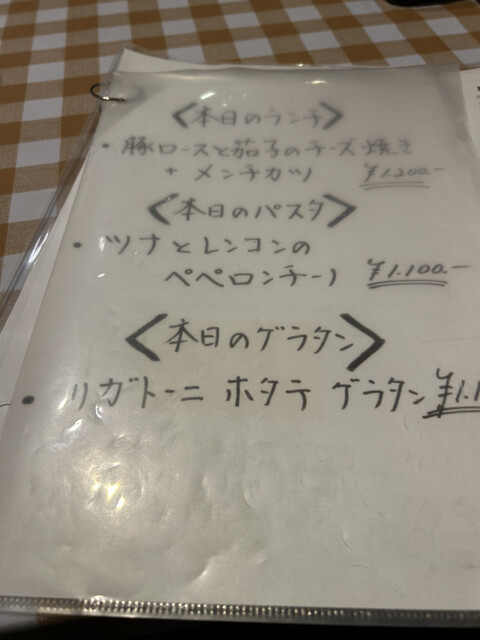 <本日のランチ>
・豚ロースと茄子のチーズ焼き
+ メンチカツ ¥1.200.-
<本日のパスタ>
・ツナとレンコンの
ペペロンチーノ ¥1.100.-
<本日のグラタン>
・リガトーニ ホタテ グラタン ¥1.1